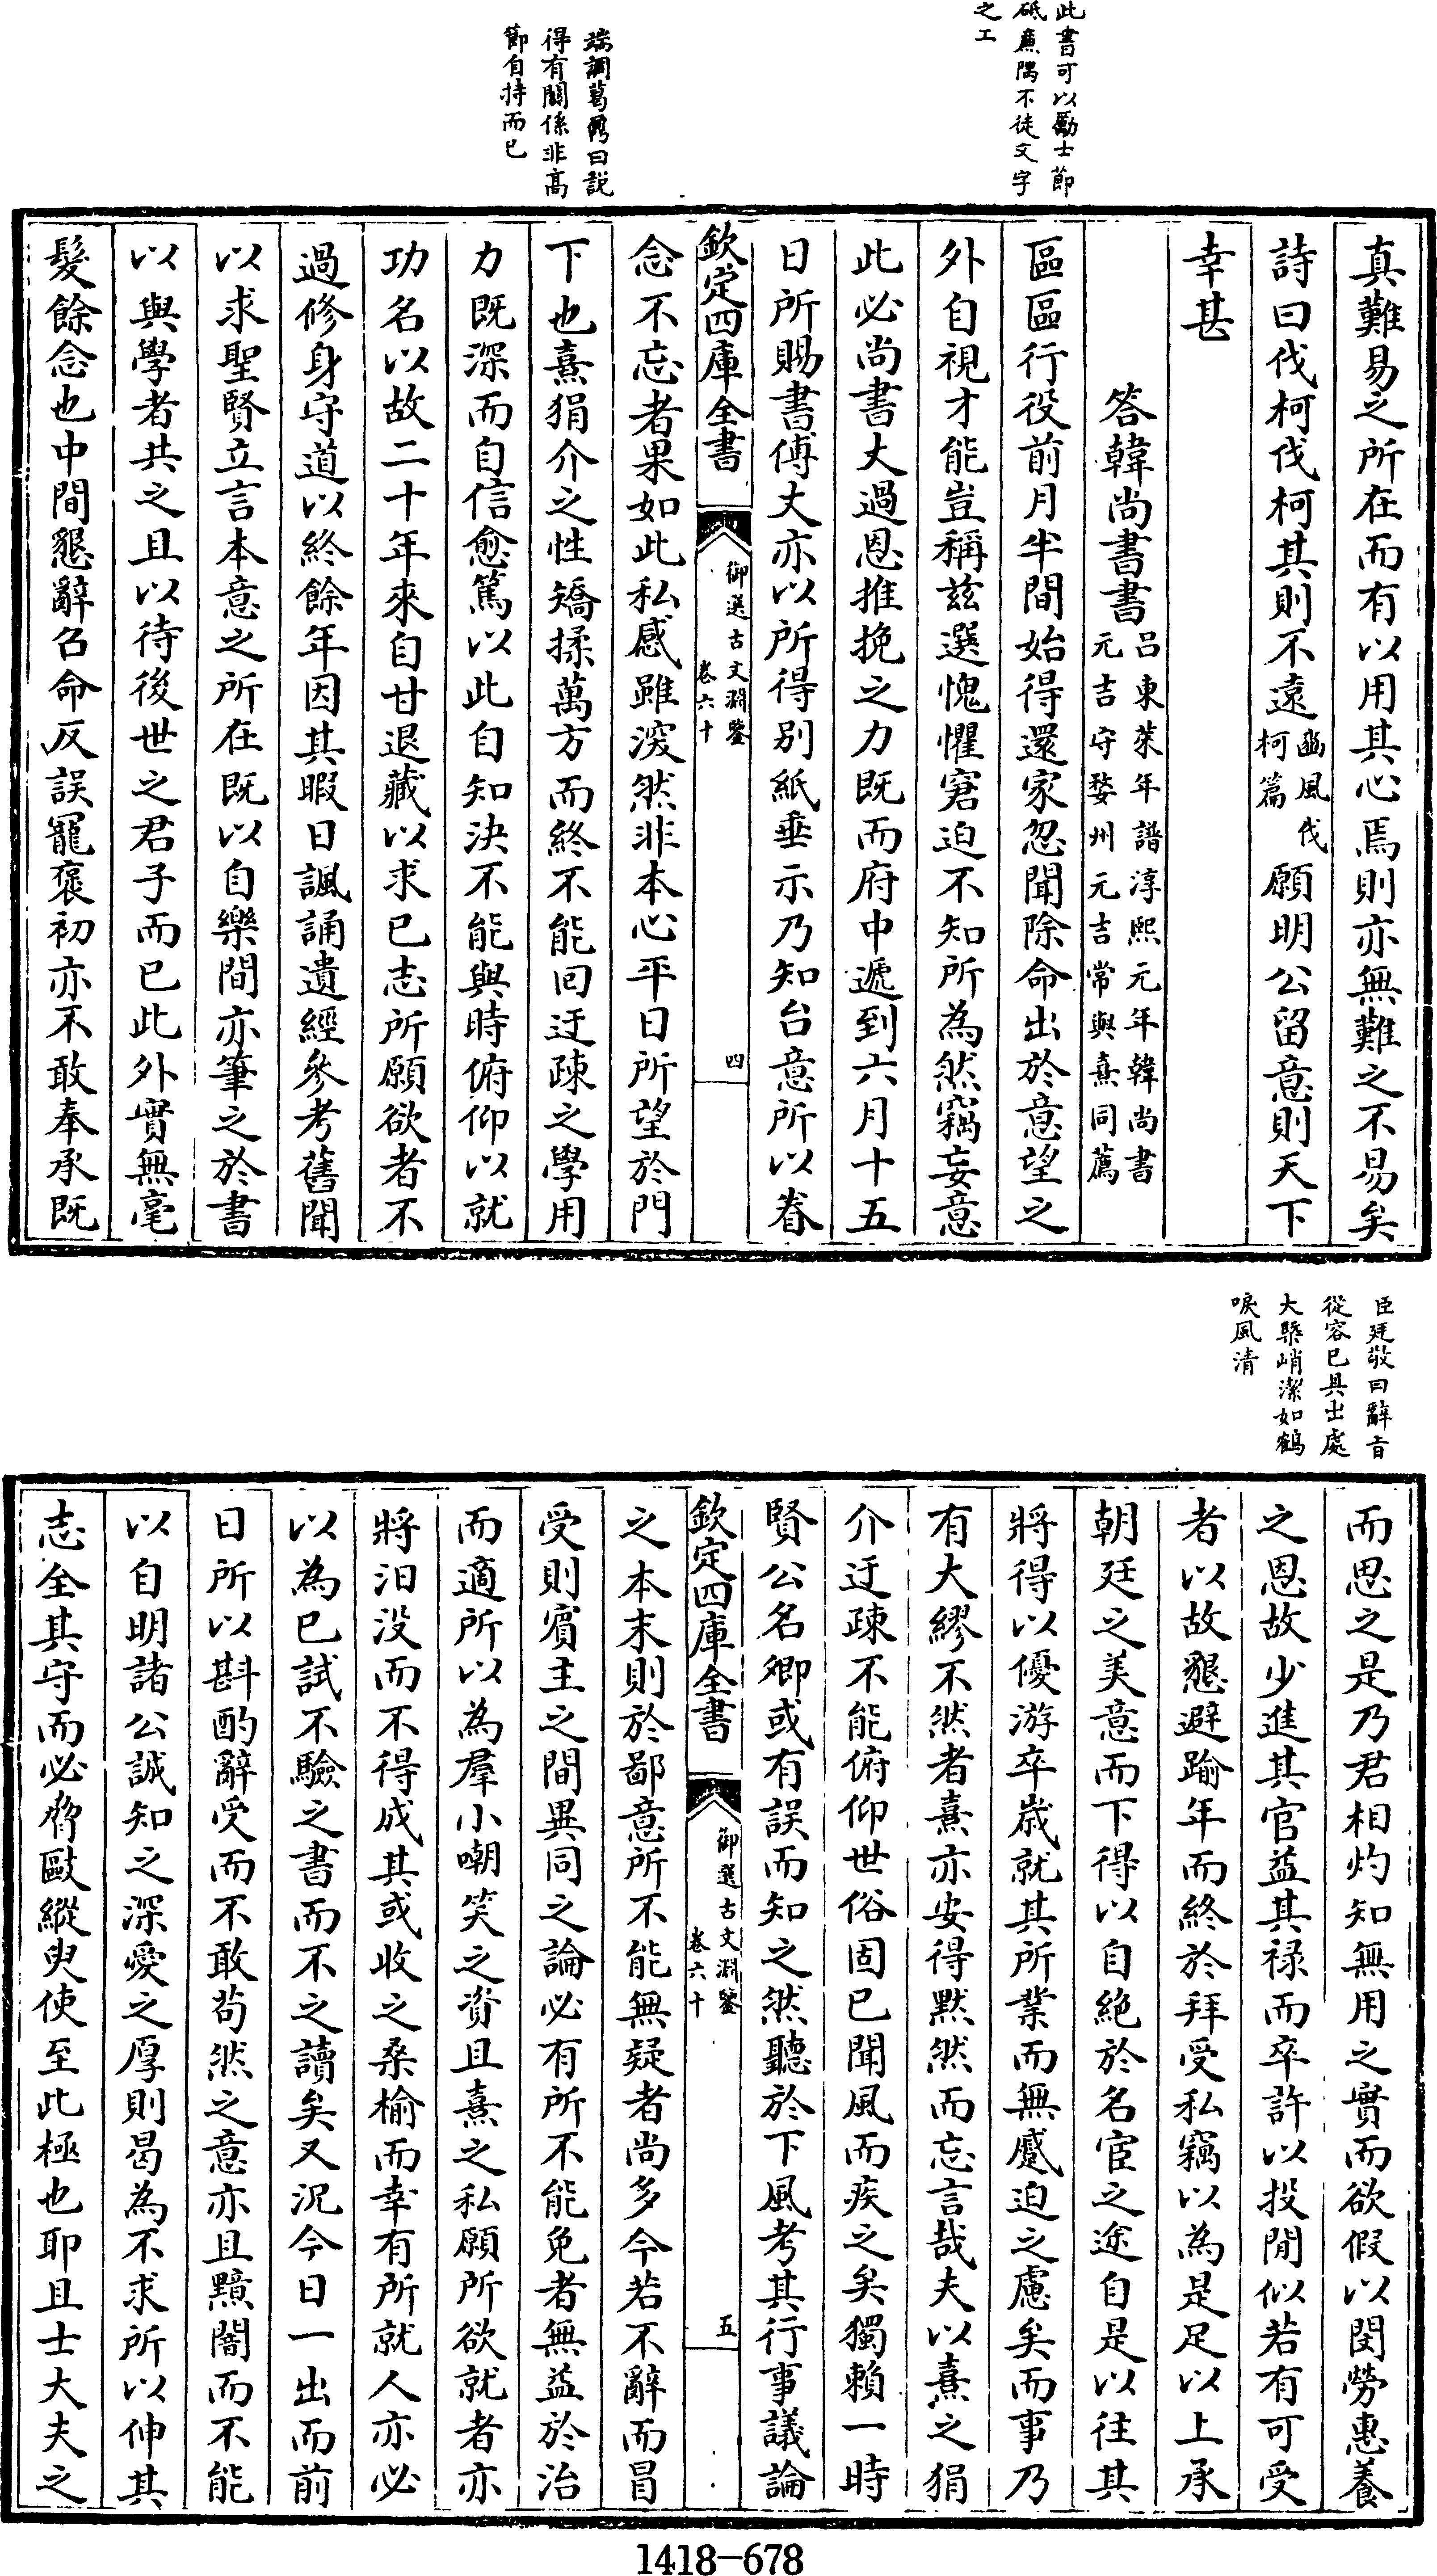 此書可以勵士節
砥廉隅不徒文字
之工
端調葛鼒曰説
得有關係非高
節自持而已
真難易之所在而有以用其心焉則亦無難之不易矣
詩曰伐柯伐柯其則不遠豳風伐柯篇願明公留意則天下
幸甚
答韓尚書書呂東萊年譜淳熙元年韓尚書元吉守婺州元吉常與熹同薦
區區行役前月半間始得還家忽聞除命出於意望之
外自視才能豈稱兹選愧懼窘迫不知所為然竊妄意
此必尚書丈過恩推挽之力既而府中遞到六月十五
日所賜書傅丈亦以所得别紙垂示乃知台意所以眷
欽定四庫全書
御選古文淵鑒
卷六十
四
念不忘者果如此私感雖深然非本心平日所望於門
下也熹狷介之性矯揉萬方而終不能回迂疎之學用
力既深而自信愈篤以此自知決不能與時俯仰以就
功名以故二十年來自甘退藏以求已志所願欲者不
過修身守道以終餘年因其暇日諷誦遺經參考舊聞
以求聖賢立言本意之所在既以自樂間亦筆之於書
以與學者共之且以待後世之君子而已此外實無毫
髮餘念也中間懇辭召命反誤寵褒初亦不敢奉承既
臣廷敬曰辭旨
從容已具出處
大槩峭潔如鶴
唳風清
而思之是乃君相灼知無用之實而欲假以閔勞惠養
之恩故少進其官益其禄而卒許以投閒似若有可受
者以故懇避踰年而終於拜受私竊以為是足以上承
朝廷之美意而下得以自絶於名宦之途自是以往其
將得以優游卒嵗就其所業而無蹙迫之慮矣而事乃
有大繆不然者熹亦安得默然而忘言哉夫以熹之狷
介迂疎不能俯仰世俗固已聞風而疾之矣獨賴一時
賢公名卿或有誤而知之然聽於下風考其行事議論
欽定四庫全書
御選古文淵鑒
卷六十
五
之本末則於鄙意所不能無疑者尚多今若不辭而冒
受則賓主之間異同之論必有所不能免者無益於治
而適所以為羣小嘲笑之資且熹之私願所欲就者亦
將汨没而不得成其或收之桑榆而幸有所就人亦必
以為已試不驗之書而不之讀矣又况今日一出而前
日所以斟酌辭受而不敢茍然之意亦且黯闇而不能
以自明諸公誠知之深愛之厚則曷為不求所以伸其
志全其守而必脅敺縱臾使至此極也耶且士大夫之
1418-678